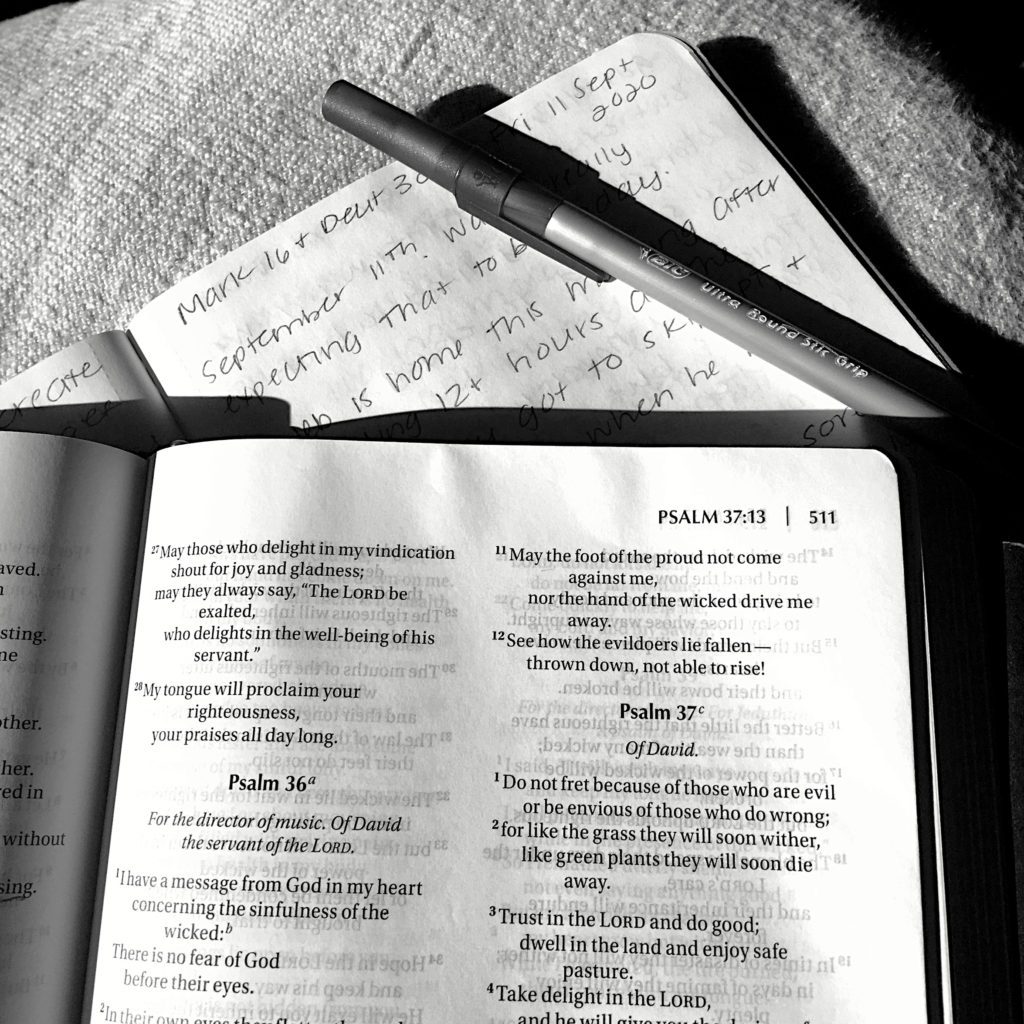 Fri 11 Sept
2020
Mark 16 + Deut 30
September 11th.
really
expecting that to be
day.
is home this
after
12+ hours
got to
+
when he
create
BIC Ultra Round Stic Grip
PSALM 37:13 | 511
27 May those who delight in my vindication
shout for joy and gladness;
may they always say, “The LORD be
exalted,
who delights in the well-being of his
servant.”
28 My tongue will proclaim your
righteousness,
your praises all day long.
Psalm 36a
For the director of music. Of David
the servant of the LORD.
1 I have a message from God in my heart
concerning the sinfulness of the
wicked:b
There is no fear of God
before their eyes.
2 In their own eyes they
11 May the foot of the proud not come
against me,
nor the hand of the wicked drive me
away.
12 See how the evildoers lie fallen—
thrown down, not able to rise!
Psalm 37c
Of David.
1 Do not fret because of those who are evil
or be envious of those who do wrong;
2 for like the grass they will soon wither,
like green plants they will soon die
away.
3 Trust in the LORD and do good;
dwell in the land and enjoy safe
pasture.
4 Take delight in the LORD,
and he will give you the
without